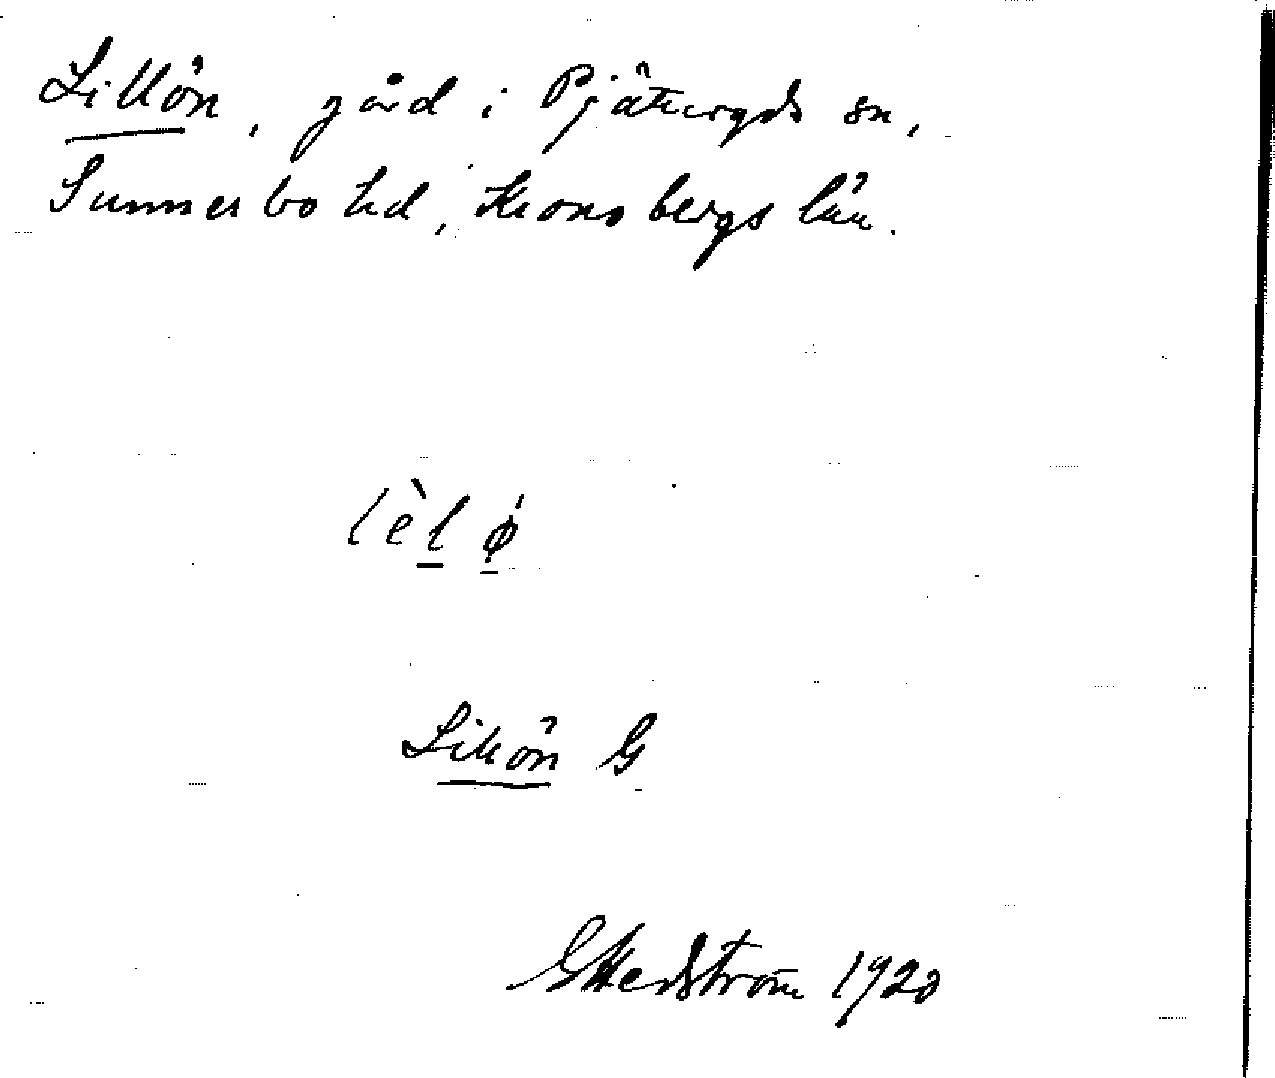 Lillön, gård i Pjätteryds sn,
Sunnerbo hd, Kronobergs län.
lèlø
Lillön G
G Hedström 1920